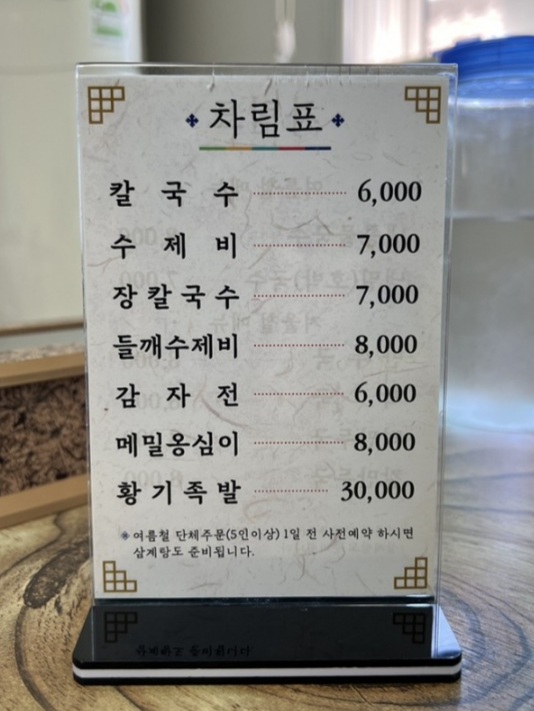 차림표
칼국수 6,000
수제비 7,000
장칼국수 7,000
들깨수제비 8,000
감자전 6,000
메밀옹심이 8,000
황기족발 30,000
여름철 단체주문(5인이상) 1일 전 사전예약 하시면
삼계탕도 준비됩니다.